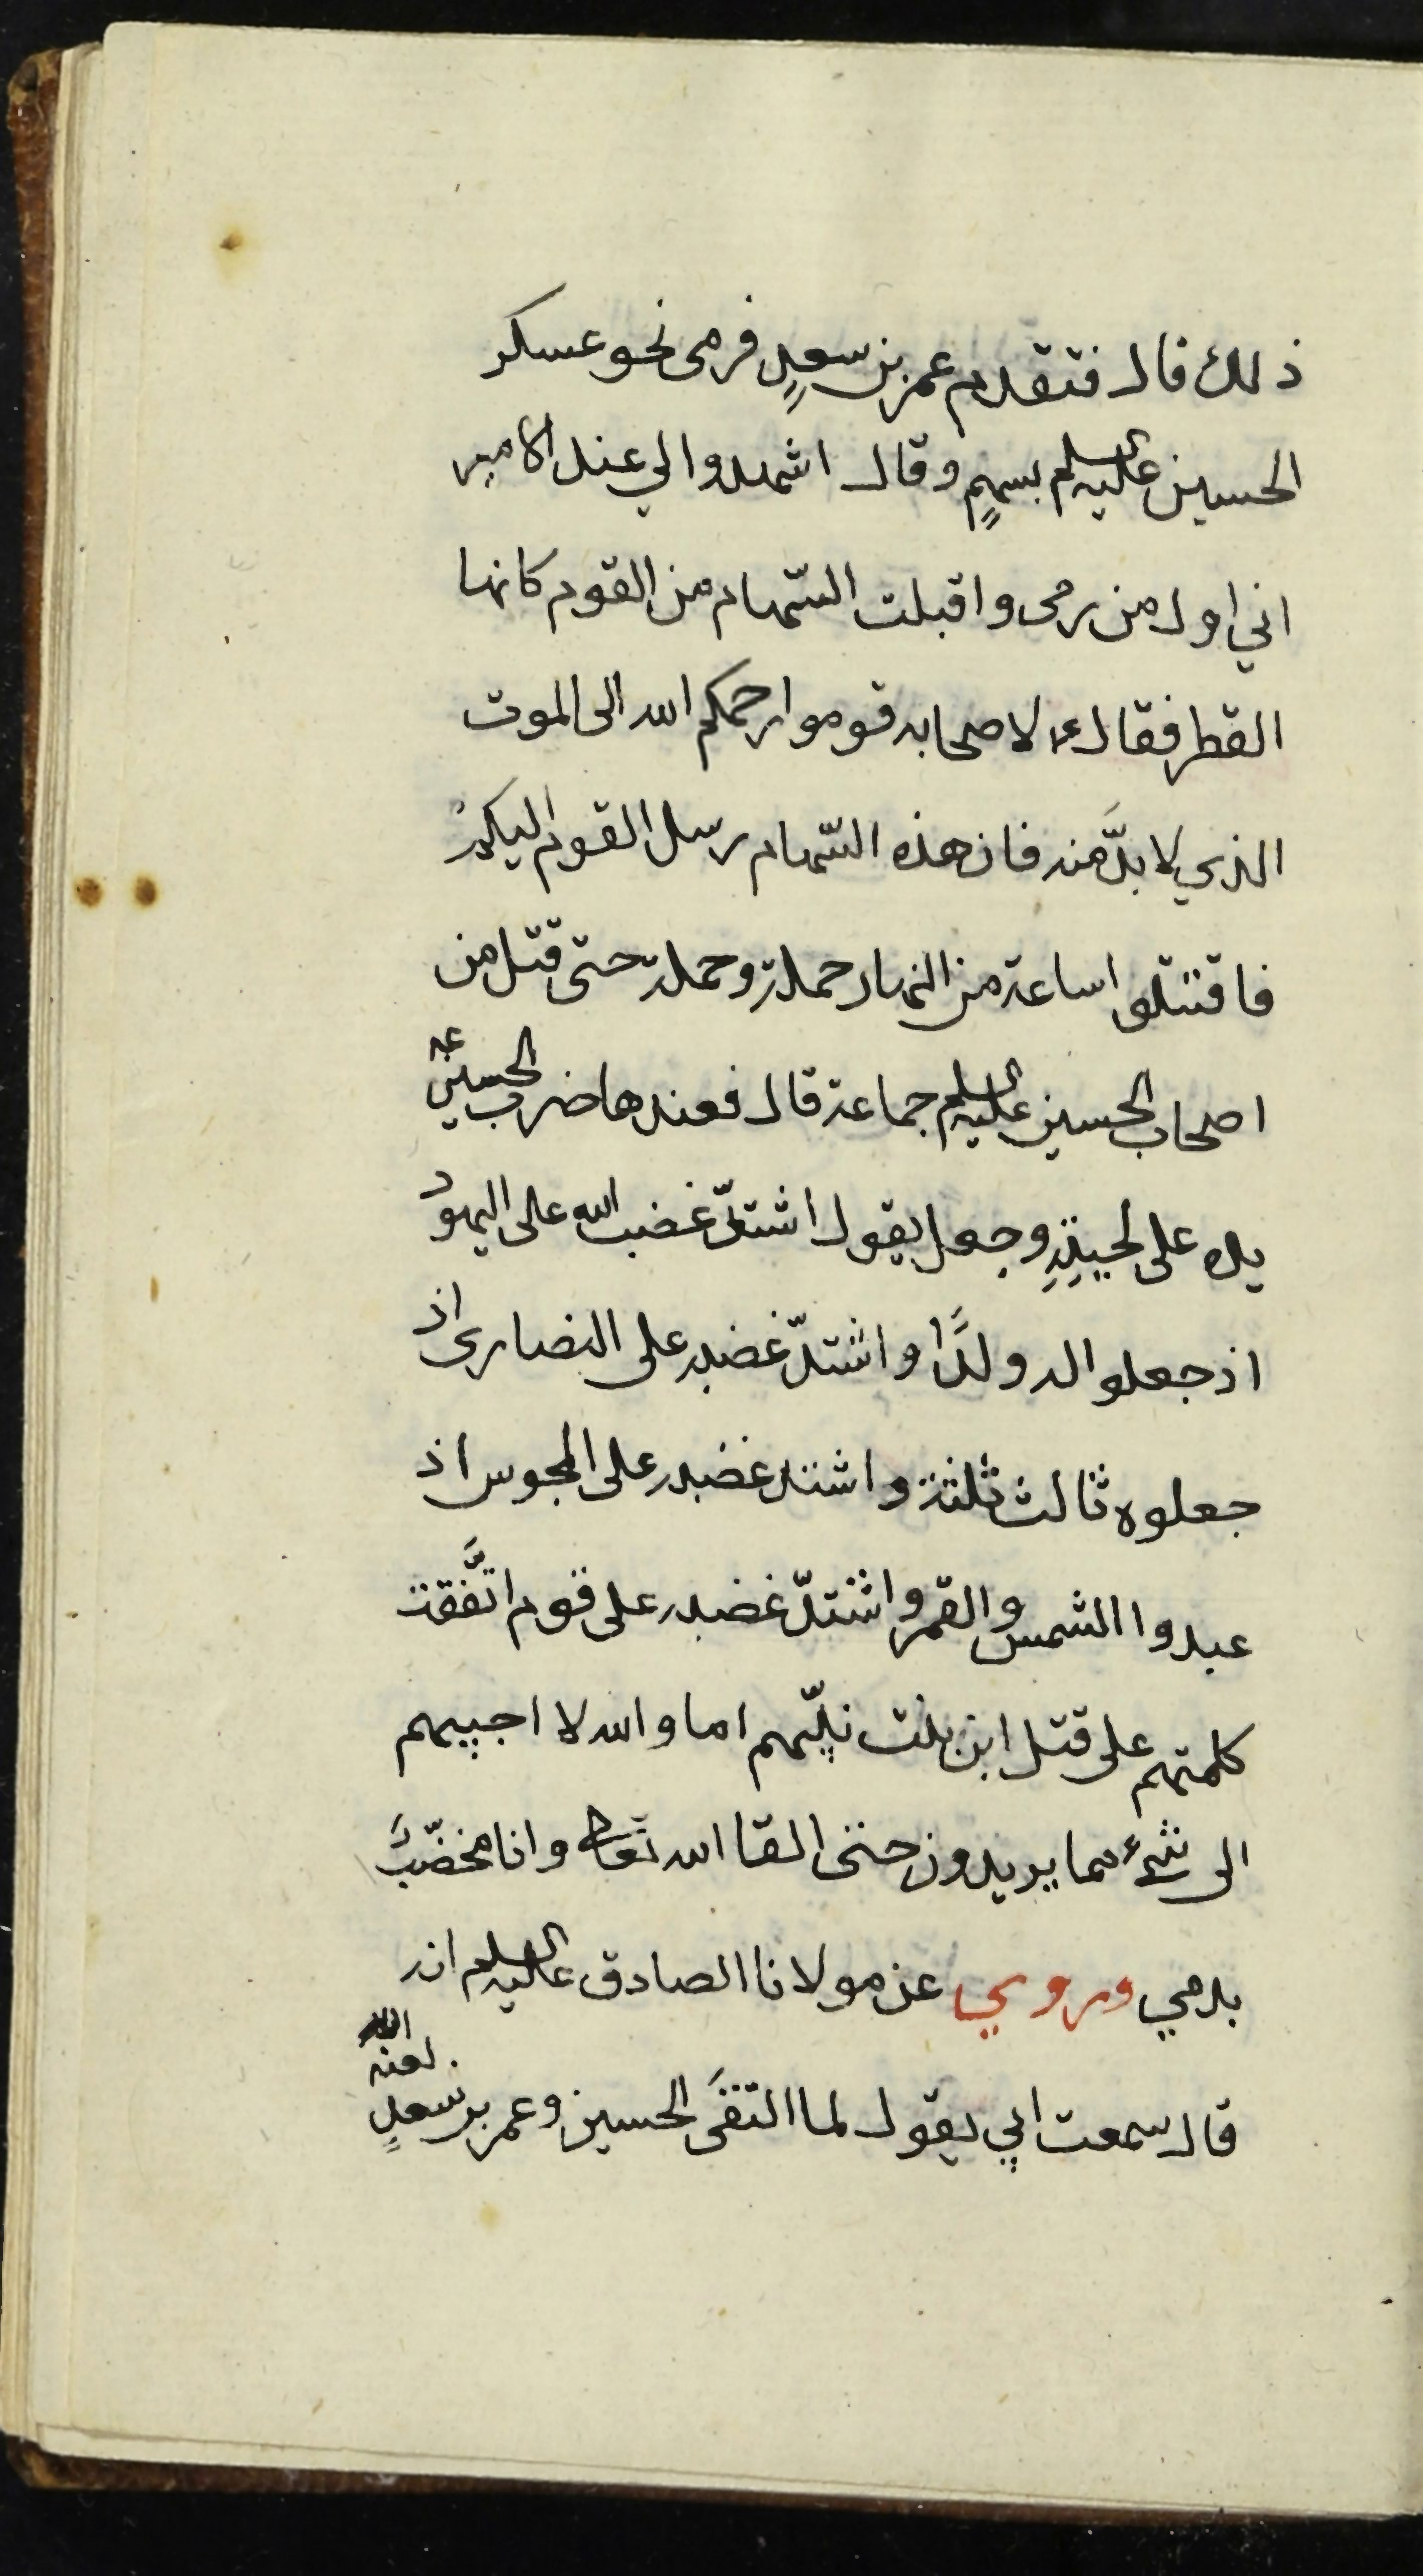 ذلك قال فتقدم عمر بن سعدٍ فرمى نحو عسكر
الحسين عليه السلم بسهمٍ وقال اشهدوا لي عند الامير
اني اول من رمى واقبلت السّهام من القوم كانها
القطر فقال ع لاصحابه قوموا رحمكم الله الى الموت
الذي لا بدَّ منه فان هذه السّهام رسل القوم اليكم
فاقتتلوا ساعة من النهار حملة وحملة حتى قتل من
اصحاب الحسين عليه السلم جماعة قال فعندها ضرب الحسين عه
يده على لحيتِهِ وجعل يقول اشتدّ غضب الله على اليهود
اذ جعلوا له ولدًا واشتدّ غضبه على النصارى اذ
جعلوه ثالث ثلثة واشتد غضبه على المجوس اذ
عبدوا الشمس والقمر واشتدّ غضبه على قوم اتَّفقت
كلمتهم على قتل ابن بنت نبيّهم اما والله لا اجيبهم
الى شئ مما يريدون حتى القا الله تعالى وانا مخضّبٌ
بدمي وروي عن مولانا الصادق عليه السلم انه
قال سمعت ابي يقول لما التقى الحسين وعمر بن سعدٍ لعنه الله